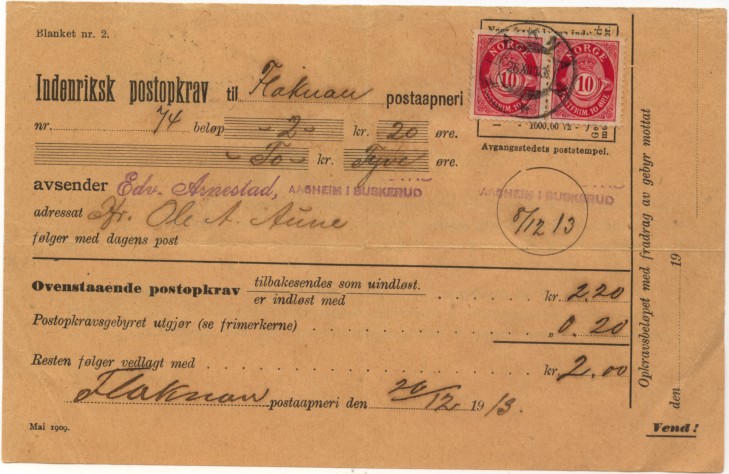 Blanket nr. 2.
Indenriksk postopkrav til Flaknan postaapneri
nr. 74 beløp 2 kr. 20 øre.
To kr. Tyve øre.
avsender Edv. Arnestad, AASHEIM I BUSKERUD
adressat Hr. Ole A. Aune
følger med dagens post
NORGE 10 NORGE 10
1000,00
Avgangsstedets poststempel.
AASHEIM I BUSKERUD
8/12 13
Ovenstaaende postopkrav tilbakesendes som uindløst.
er indløst med kr. 2.20
Postopkravsgebyret utgjør (se frimerkerne) „ 0.20
Resten følger vedlagt med kr. 2.00
Flaknan postaapneri den 20/12 1913.
Mai 1909.
Vend!
Opkravsbeløpet med fradrag av gebyr mottat
den 19